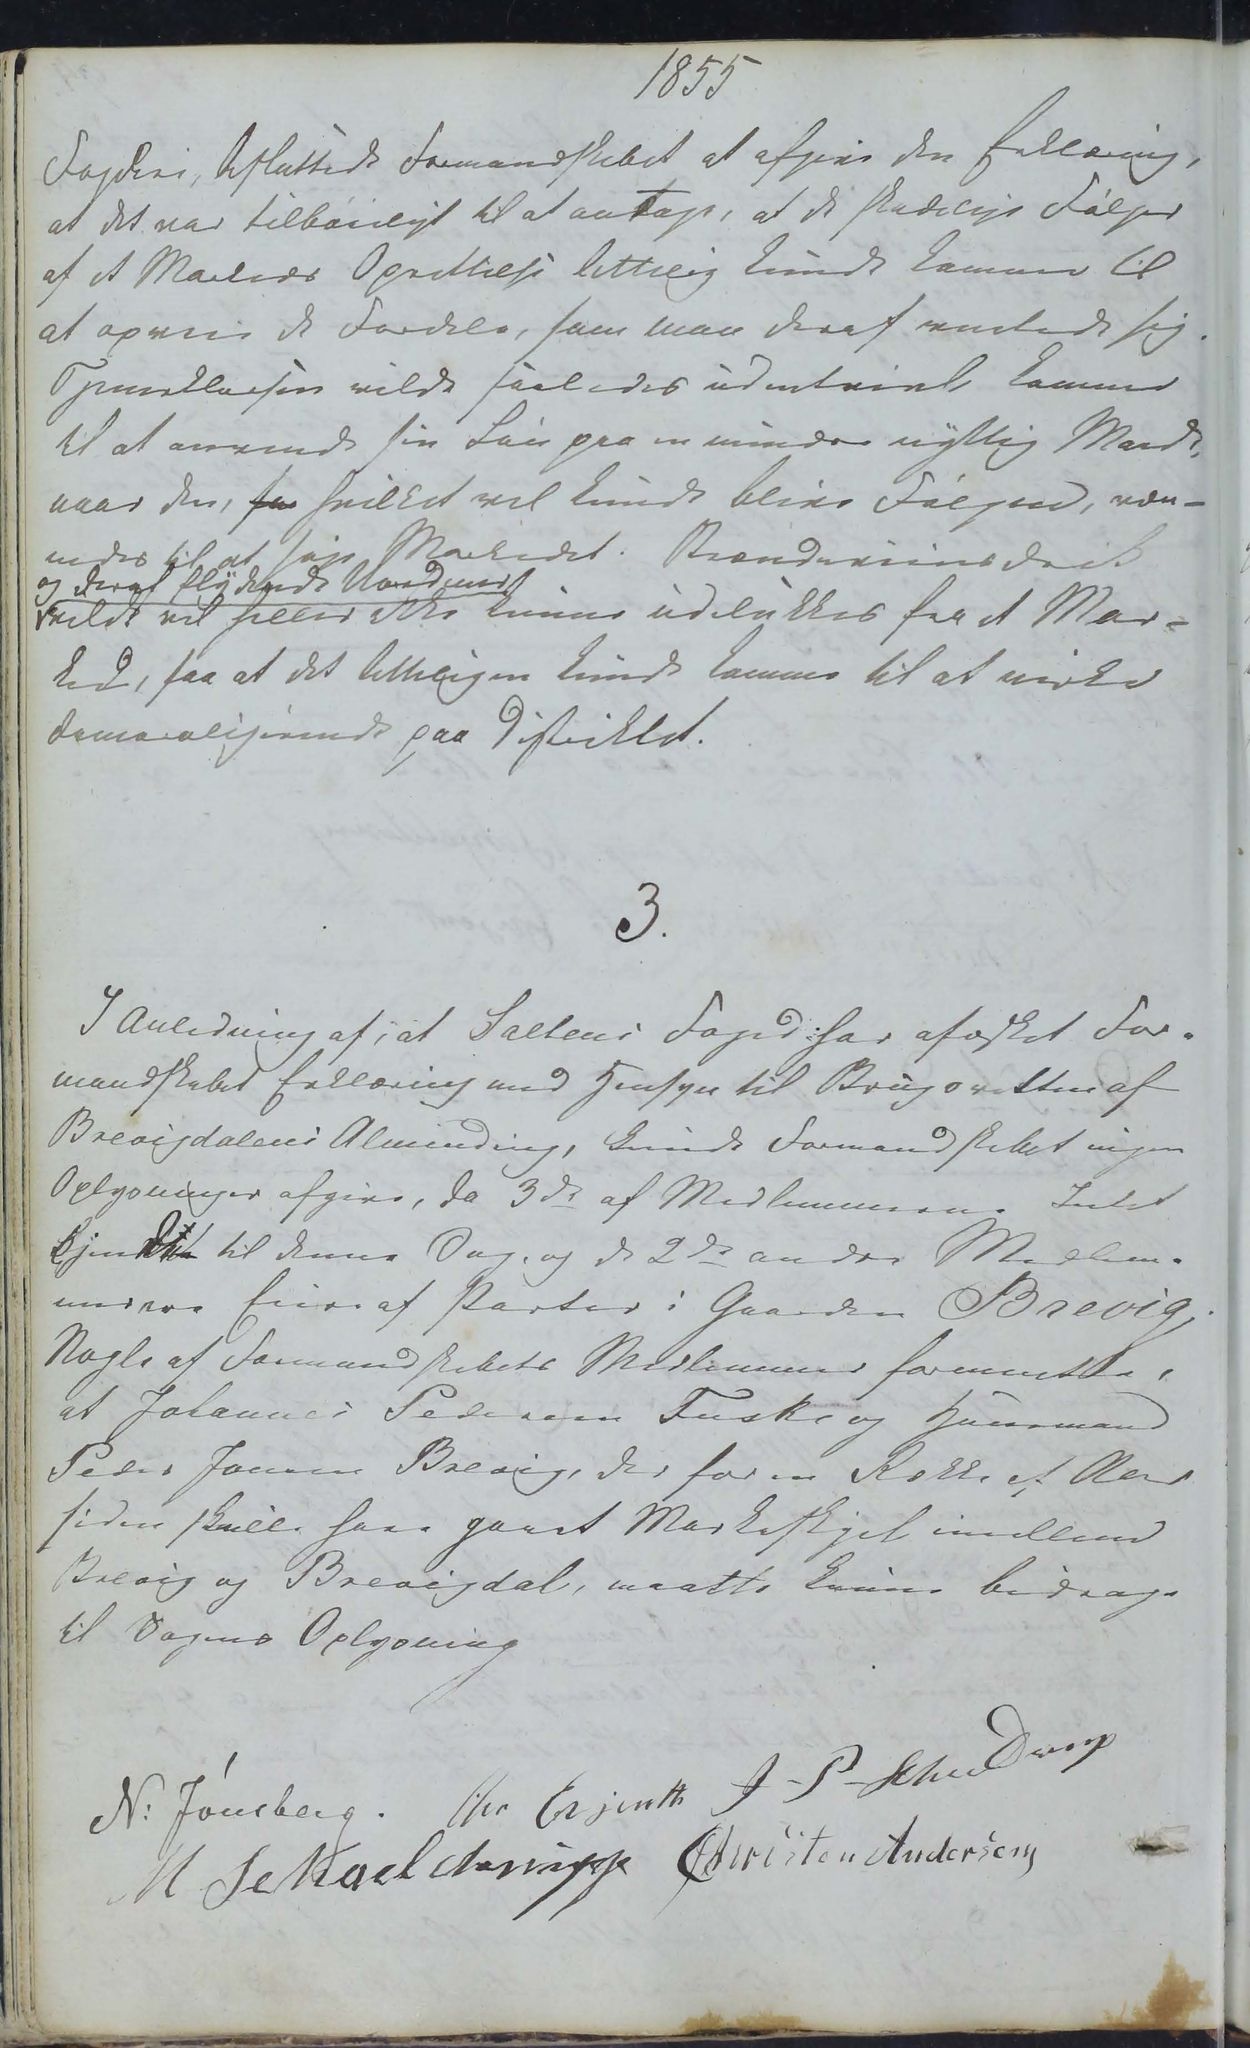 1855
Fogderi, besluttede Formandskabet at afgive den Erklæring,
at det var tilbøieligt til at antage, at de skadelige Følger
af et Markeds Oprettelse lettelig kunde komme til
at opveie de Fordele, som man deraf ventede sig.
Tjenerklassen vilde saaledes udentvivl komme
til at anvende sin Løn paa en mindre nyttig Maade,
naar den, hvilket vel kunde blive Følgen, væn-
nedes til at søge Markedet. Brændeviinsdrik
og deraf flydende Uordener
vilde vel heller ikke kunne udelukkes fra et Mar-
ked, saa at det letteligen kunde komme til at virke
demoraliserende paa Distriktet.
3.
I Anledning af, at Saltens Foged har afæsket For-
mandskabet Erklæring med Hensyn til Brugsretten af
Brevigdalens Alminding, kunde Formandskabet ingen
Oplysninger afgive, da 3de af Medlemmerne Intet
kjendte til denne Sag, og de 2de andre Medlem-
mer ere Eiere af Parter i Gaarden Brevig.
Nogle af Formandskabets Medlemmer formente,
at Johannes Pedersen Fuske og Huusmand
Peder Jonsen Brevig, der for en Række af Aar
siden skulle have gaaet Markeskjel imellem
Brevig og Brevigdal, maatte kunne bidrage
til Sagens Oplysning
N: Jönsberg. J-P-Scheldrup
M Schaeldrupp Christen Andersen